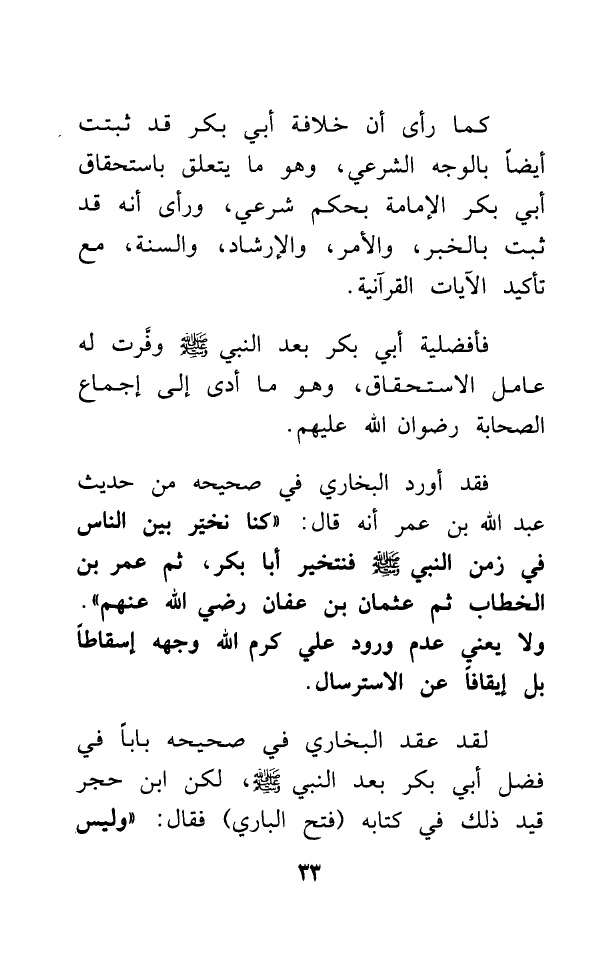 كما رأى أن خلافة أبي بكر قد ثبتت
أيضاً بالوجه الشرعي، وهو ما يتعلق باستحقاق
أبي بكر الإمامة بحكم شرعي، ورأى أنه قد
ثبت بالخبر، والأمر، والإرشاد، والسنة، مع
تأكيد الآيات القرآنية.
فأفضلية أبي بكر بعد النبي ﷺ وفَّرت له
عامل الاستحقاق، وهو ما أدى إلى إجماع
الصحابة رضوان الله عليهم.
فقد أورد البخاري في صحيحه من حديث
عبد الله بن عمر أنه قال: «كنا نخيّر بين الناس
في زمن النبي ﷺ فنتخير أبا بكر، ثم عمر بن
الخطاب ثم عثمان بن عفان رضي الله عنهم».
ولا يعني عدم ورود علي كرم الله وجهه إسقاطاً
بل إيقافاً عن الاسترسال.
لقد عقد البخاري في صحيحه باباً في
فضل أبي بكر بعد النبي ﷺ، لكن ابن حجر
قيد ذلك في كتابه (فتح الباري) فقال: «وليس
٣٣